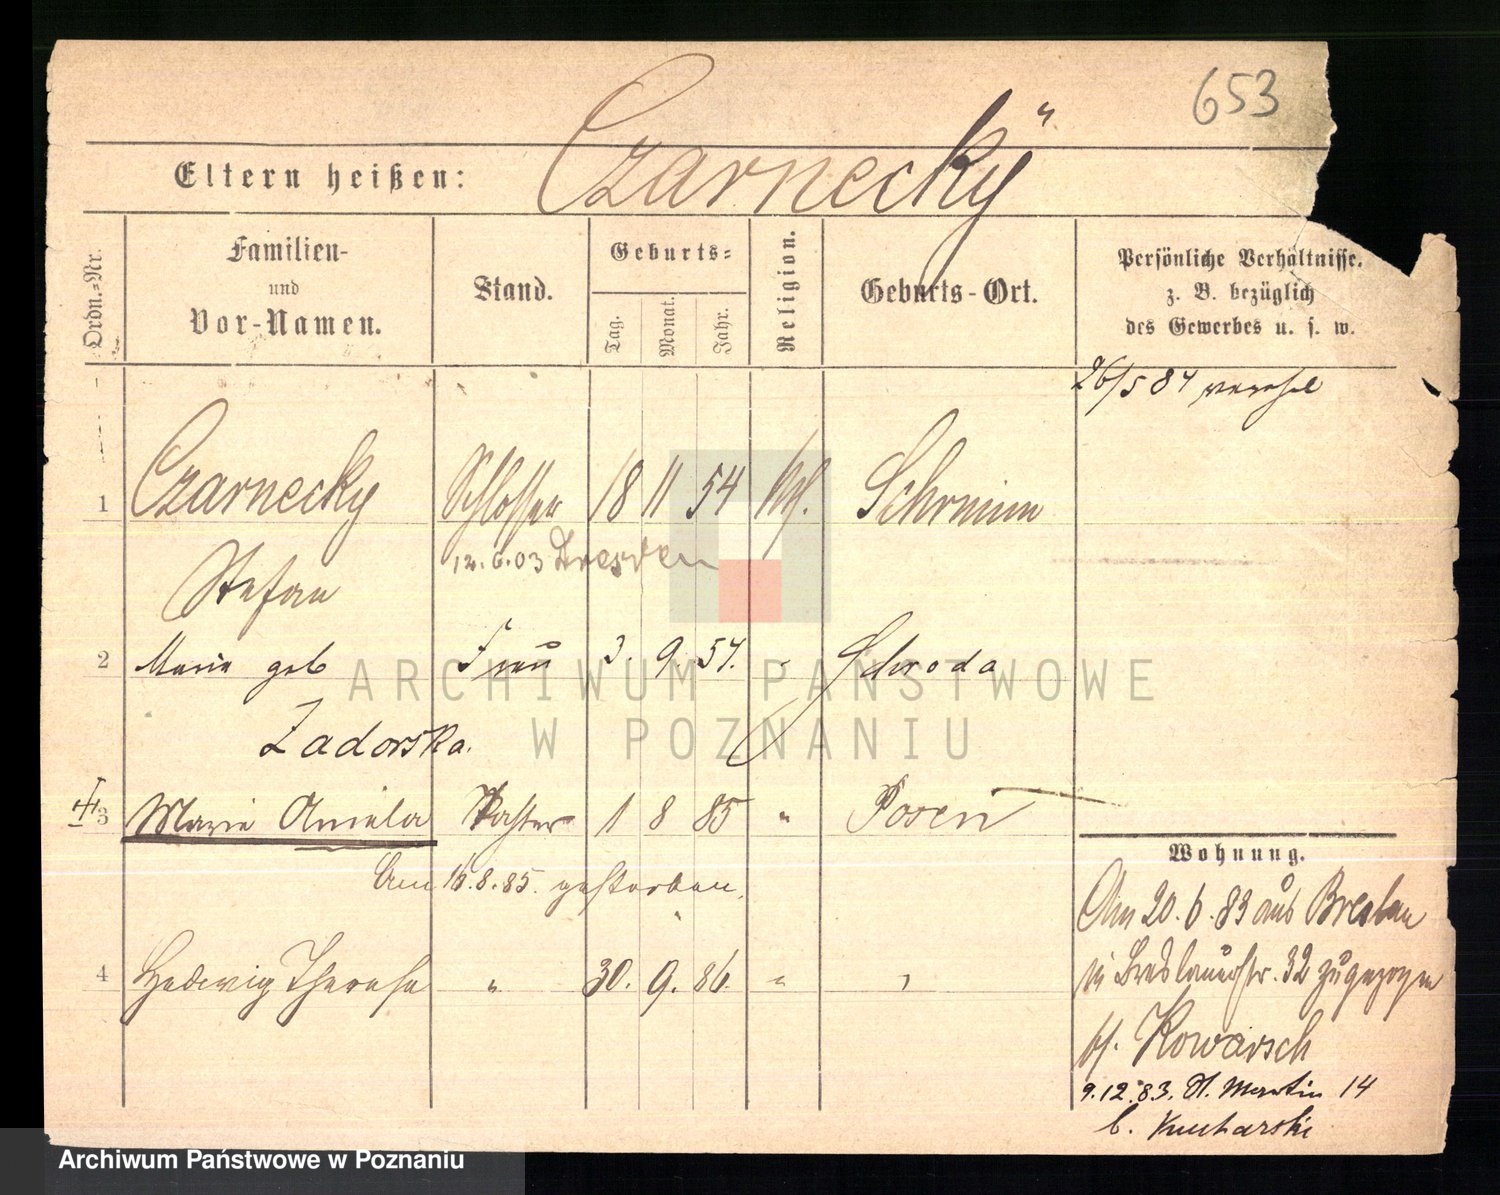 653
Eltern heißen: Czarnecky
Ordn.=Nr.
Familien-
und
Vor-Namen.
Stand.
Geburts=
Tag.
Monat.
Jahr.
Religion.
Geburts-Ort.
Persönliche Verhältnisse.
z. B. bezüglich
des Gewerbes u. s. w.
26/5 84
1 Czarnecky Schlosser 18 11 54 kth. Schrimm
12.6.03 Dresden
Stefan
2 Marie geb Frau 3. 9. 57. " Schroda
Zadorska.
3 Marie Aniela Tochter 1 8 85 " Posen
Am 16.8.85. gestorben.
4 Hedwig Therese " 30. 9. 86. " "
Wohnung.
Am 20.6.83 aus Breslau
in Breslauerstr. 32 zugezogen
bf. Kowarsch
9.12.83. St. Martin 14
b. Kucharski
ARCHIWUM PAŃSTWOWE
W POZNANIU
Archiwum Państwowe w Poznaniu